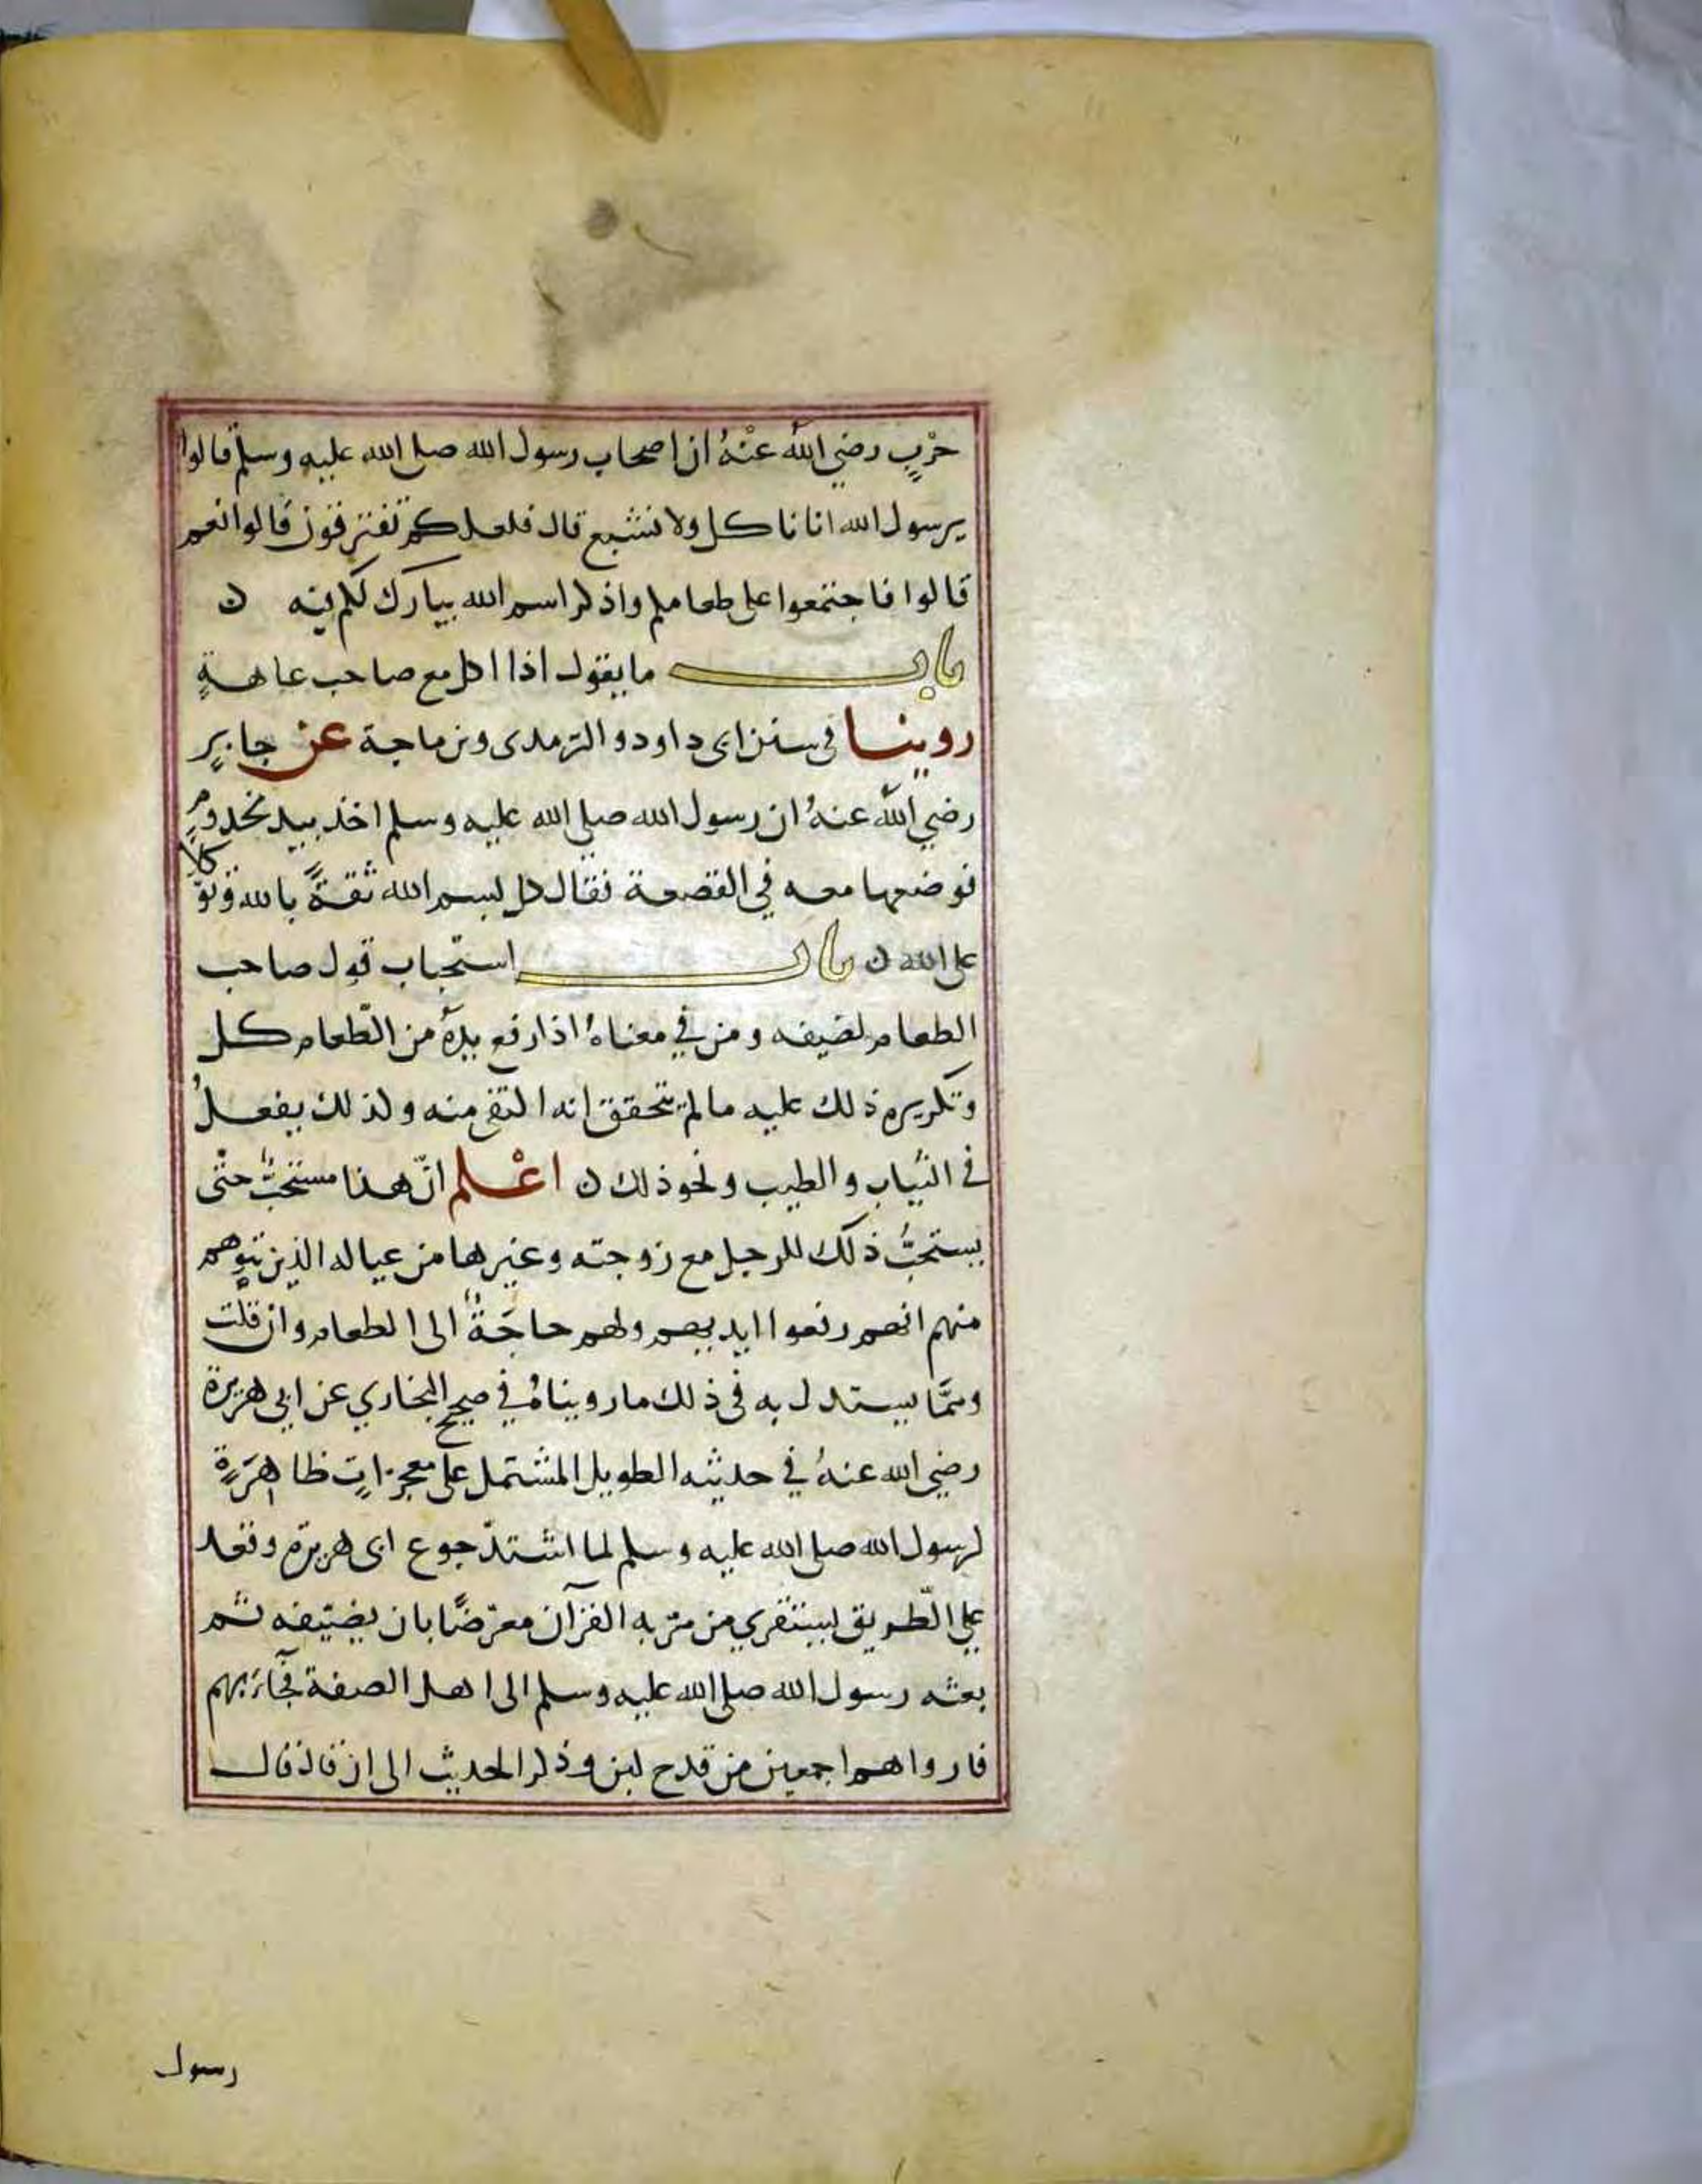 حرْبٍ رضي الله عنْهُ ان اصحاب رسول الله صلى الله عليه وسلم قالوا
يرسول الله انا ناكل ولا نشبع قال فلعلكم تفترقون قالوا نعم
قالوا فاجتمعوا على طعامكم واذكر اسم الله يبارك لكم فيه ن
باب ما يقول اذا اكل مع صاحب عاهةٍ
روينا في سنن ابى داود والترمدى وبن ماجة عن جابرٍ
رضي الله عنهُ ان رسول الله صلى الله عليه وسلم اخذ بيد مجدومٍ
فوضعها معه في القصعة فقال كل بسم الله ثقةً بالله وتوّكلا
على الله ن باب استحباب قول صاحب
الطعام لضيفه ومن في معناهُ اذا رفع يدهُ من الطّعام كل
وتكريره ذلك عليه ما لم يتحقق انه اكتفى منه وكذلك يفعلُ
في الثياب والطيب ونحو ذلك ن اعْلم انّ هذا مستحبٌّ حتى
يستحبُّ ذلك للرجل مع زوجته وغيرها من عياله الذين يتوهم
منهم انهم رفعوا ايديهم ولهم حاجَةٌ الى الطعام وان قلت
وممَّا يستدل به فى ذلك ما رويناهُ في صحيح البخاري عن ابي هريرة
رضي الله عنهُ في حديثه الطويل المشتمل على معجزاتٍ ظاهرَةٍ
لرسول الله صلى الله عليه وسلم لما اشتدّ جوع ابى هريرة وقعد
على الطّريق ليستقري من مرّ به القرآن معرّضًا بان يضيّفه ثم
بعثه رسول الله صلى الله عليه وسلم الى اهل الصفة فجآء بهم
فارواهم اجمعين من قدح لبن وذكر الحديث الى ان قال قال
رسول